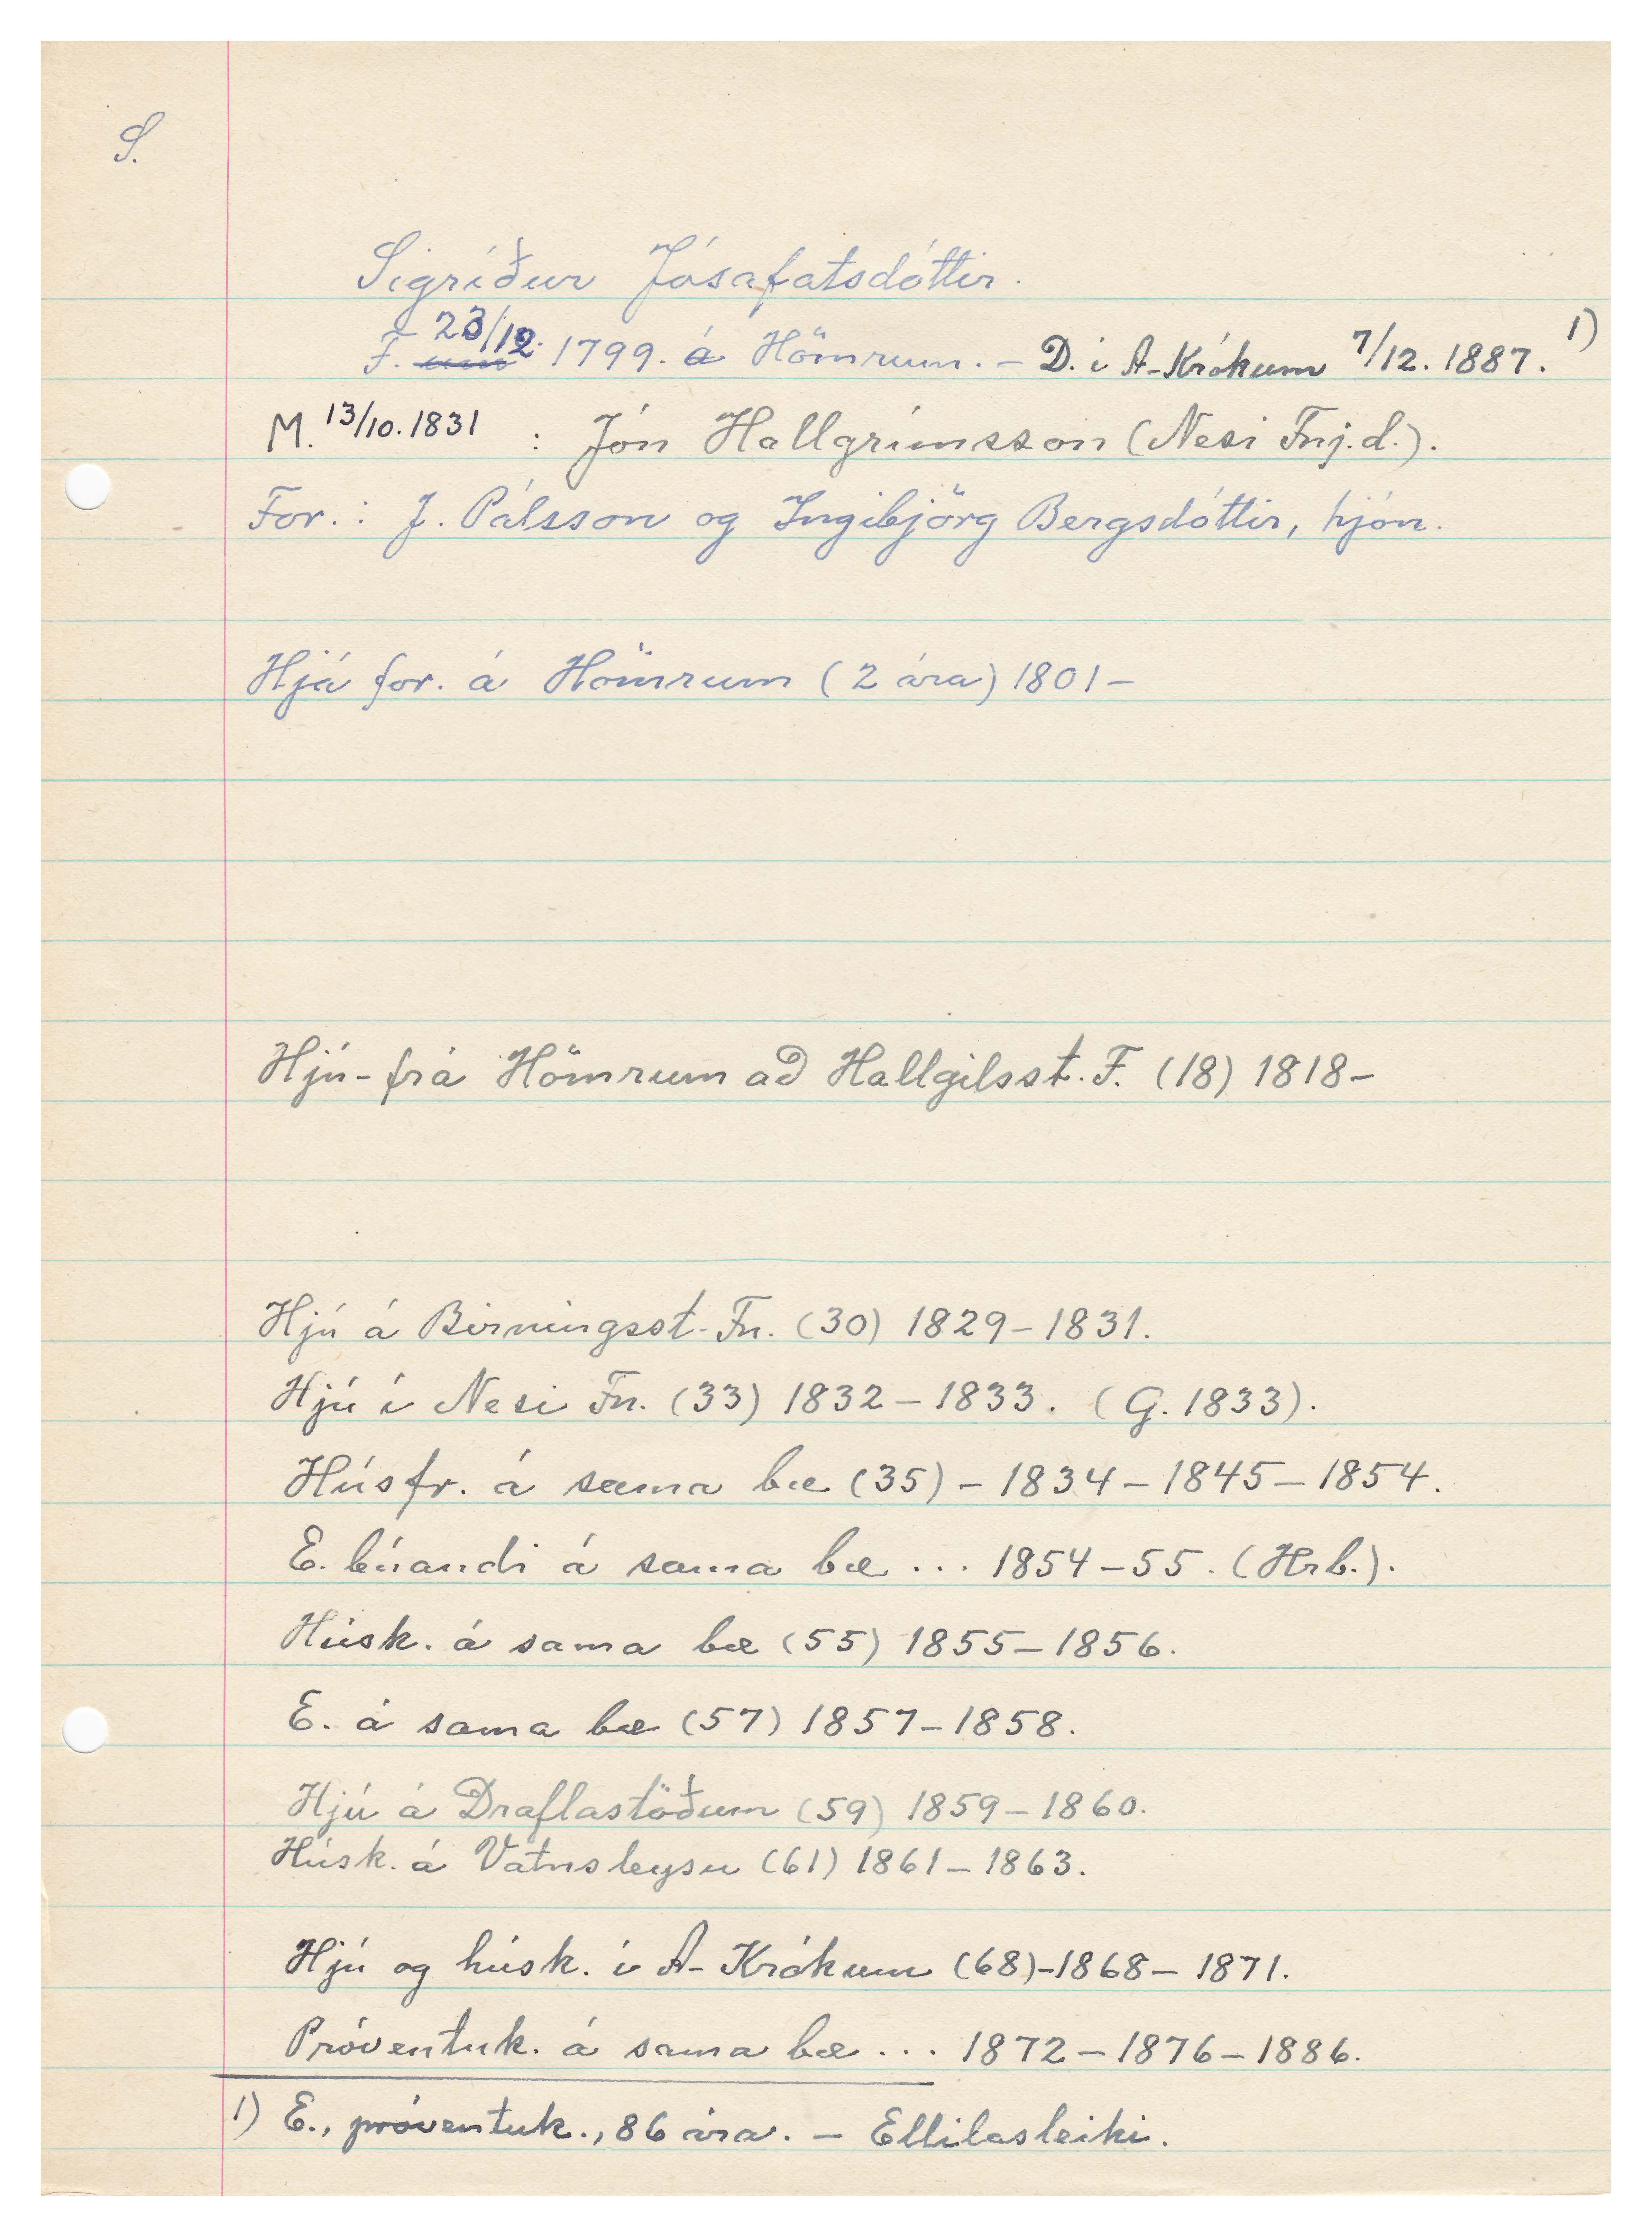 S.
Sigríður Jósafatsdóttir.
F. 23/12. 1799. á Hömrum. - D. í A-Krókum 7/12. 1887. 1)
M. 13/10. 1831 : Jón Hallgrímsson (Nesi Fnj.d.).
For.: J. Pálsson og Ingibjörg Bergsdóttir, hjón.
Hjá for. á Hömrum (2 ára) 1801-
Hjú - frá Hömrum að Hallgilsst. F. (18) 1818-
Hjú á Birningsst. Fn. (30) 1829-1831.
Hjú í Nesi Fn. (33) 1832-1833. (G. 1833).
Húsfr. á sama bæ (35) - 1834-1845-1854.
E. búandi á sama bæ ... 1854-55. (Hrb.).
Húsk. á sama bæ (55) 1855-1856.
E. á sama bæ (57) 1857-1858.
Hjú á Draflastöðum (59) 1859-1860.
Húsk. á Vatnsleysu (61) 1861-1863.
Hjú og húsk. í A-Krókum (68)-1868-1871.
Próventuk. á sama bæ ... 1872-1876-1886.
1) E., próventuk., 86 ára. - Ellilasleiki.